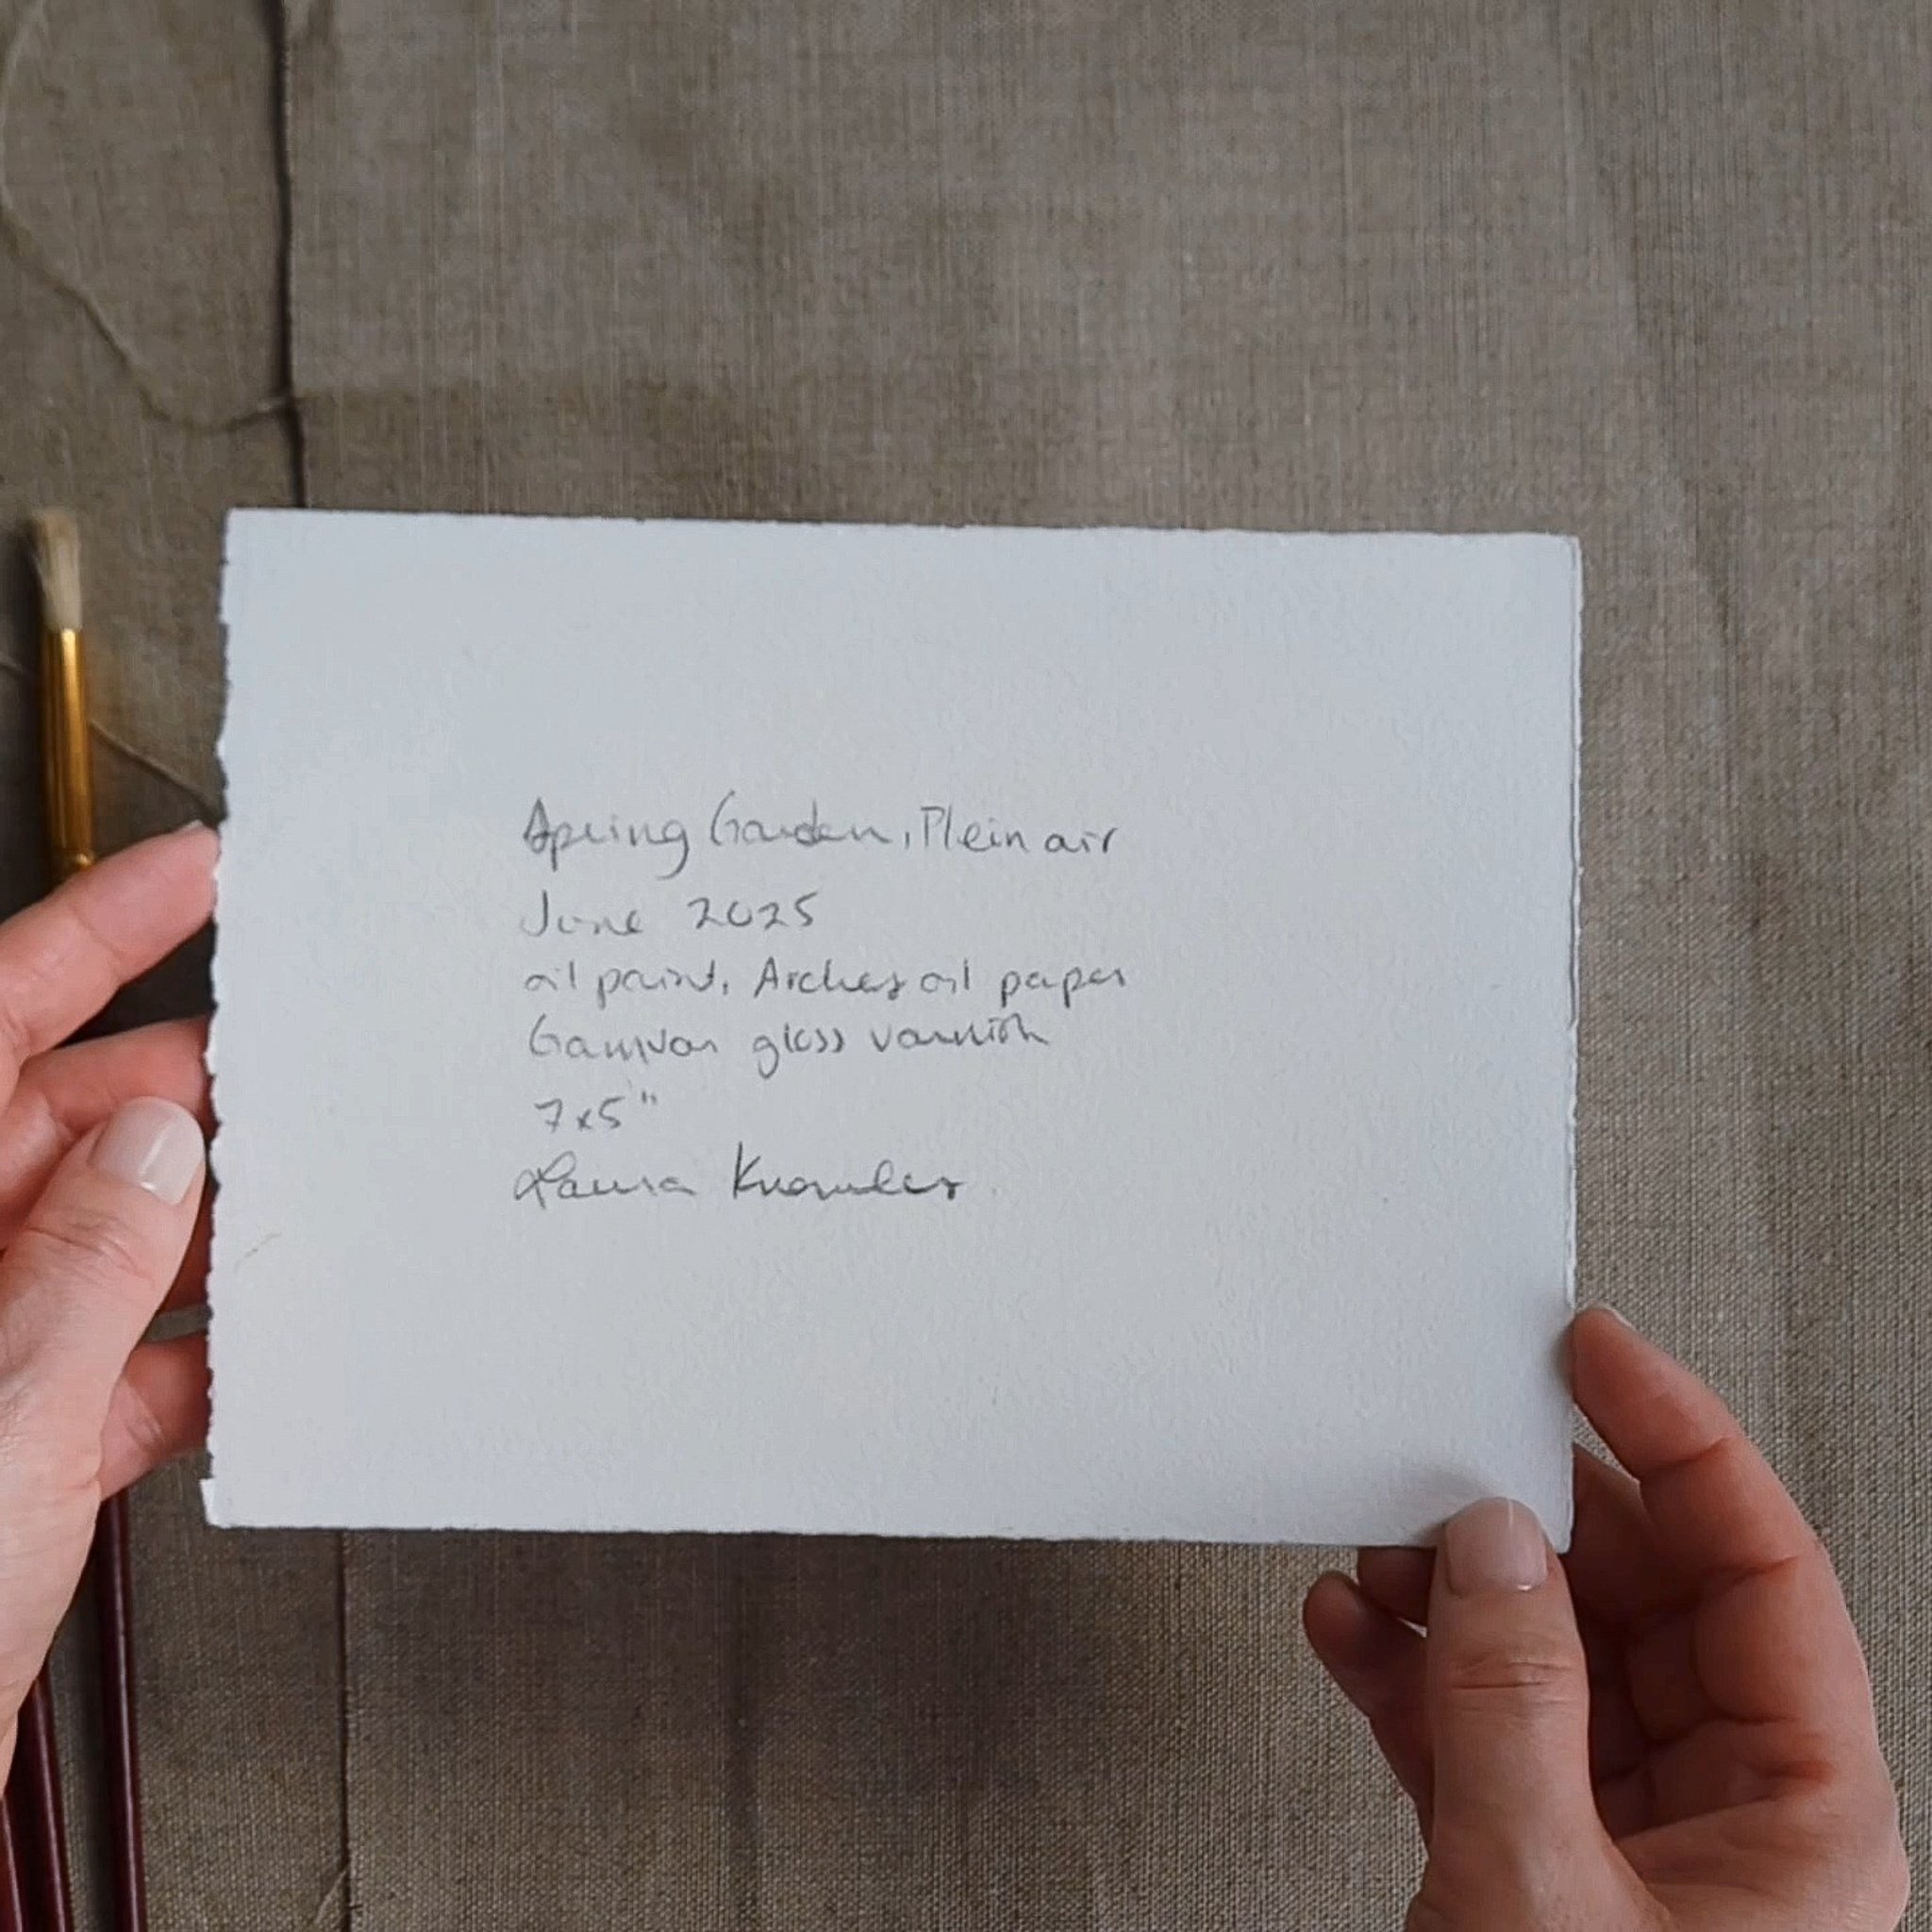 Spring Garden, Plein air
June 2025
oil paint, Arches oil paper
Gamvar gloss varnish
7x5"
Laura Knowles